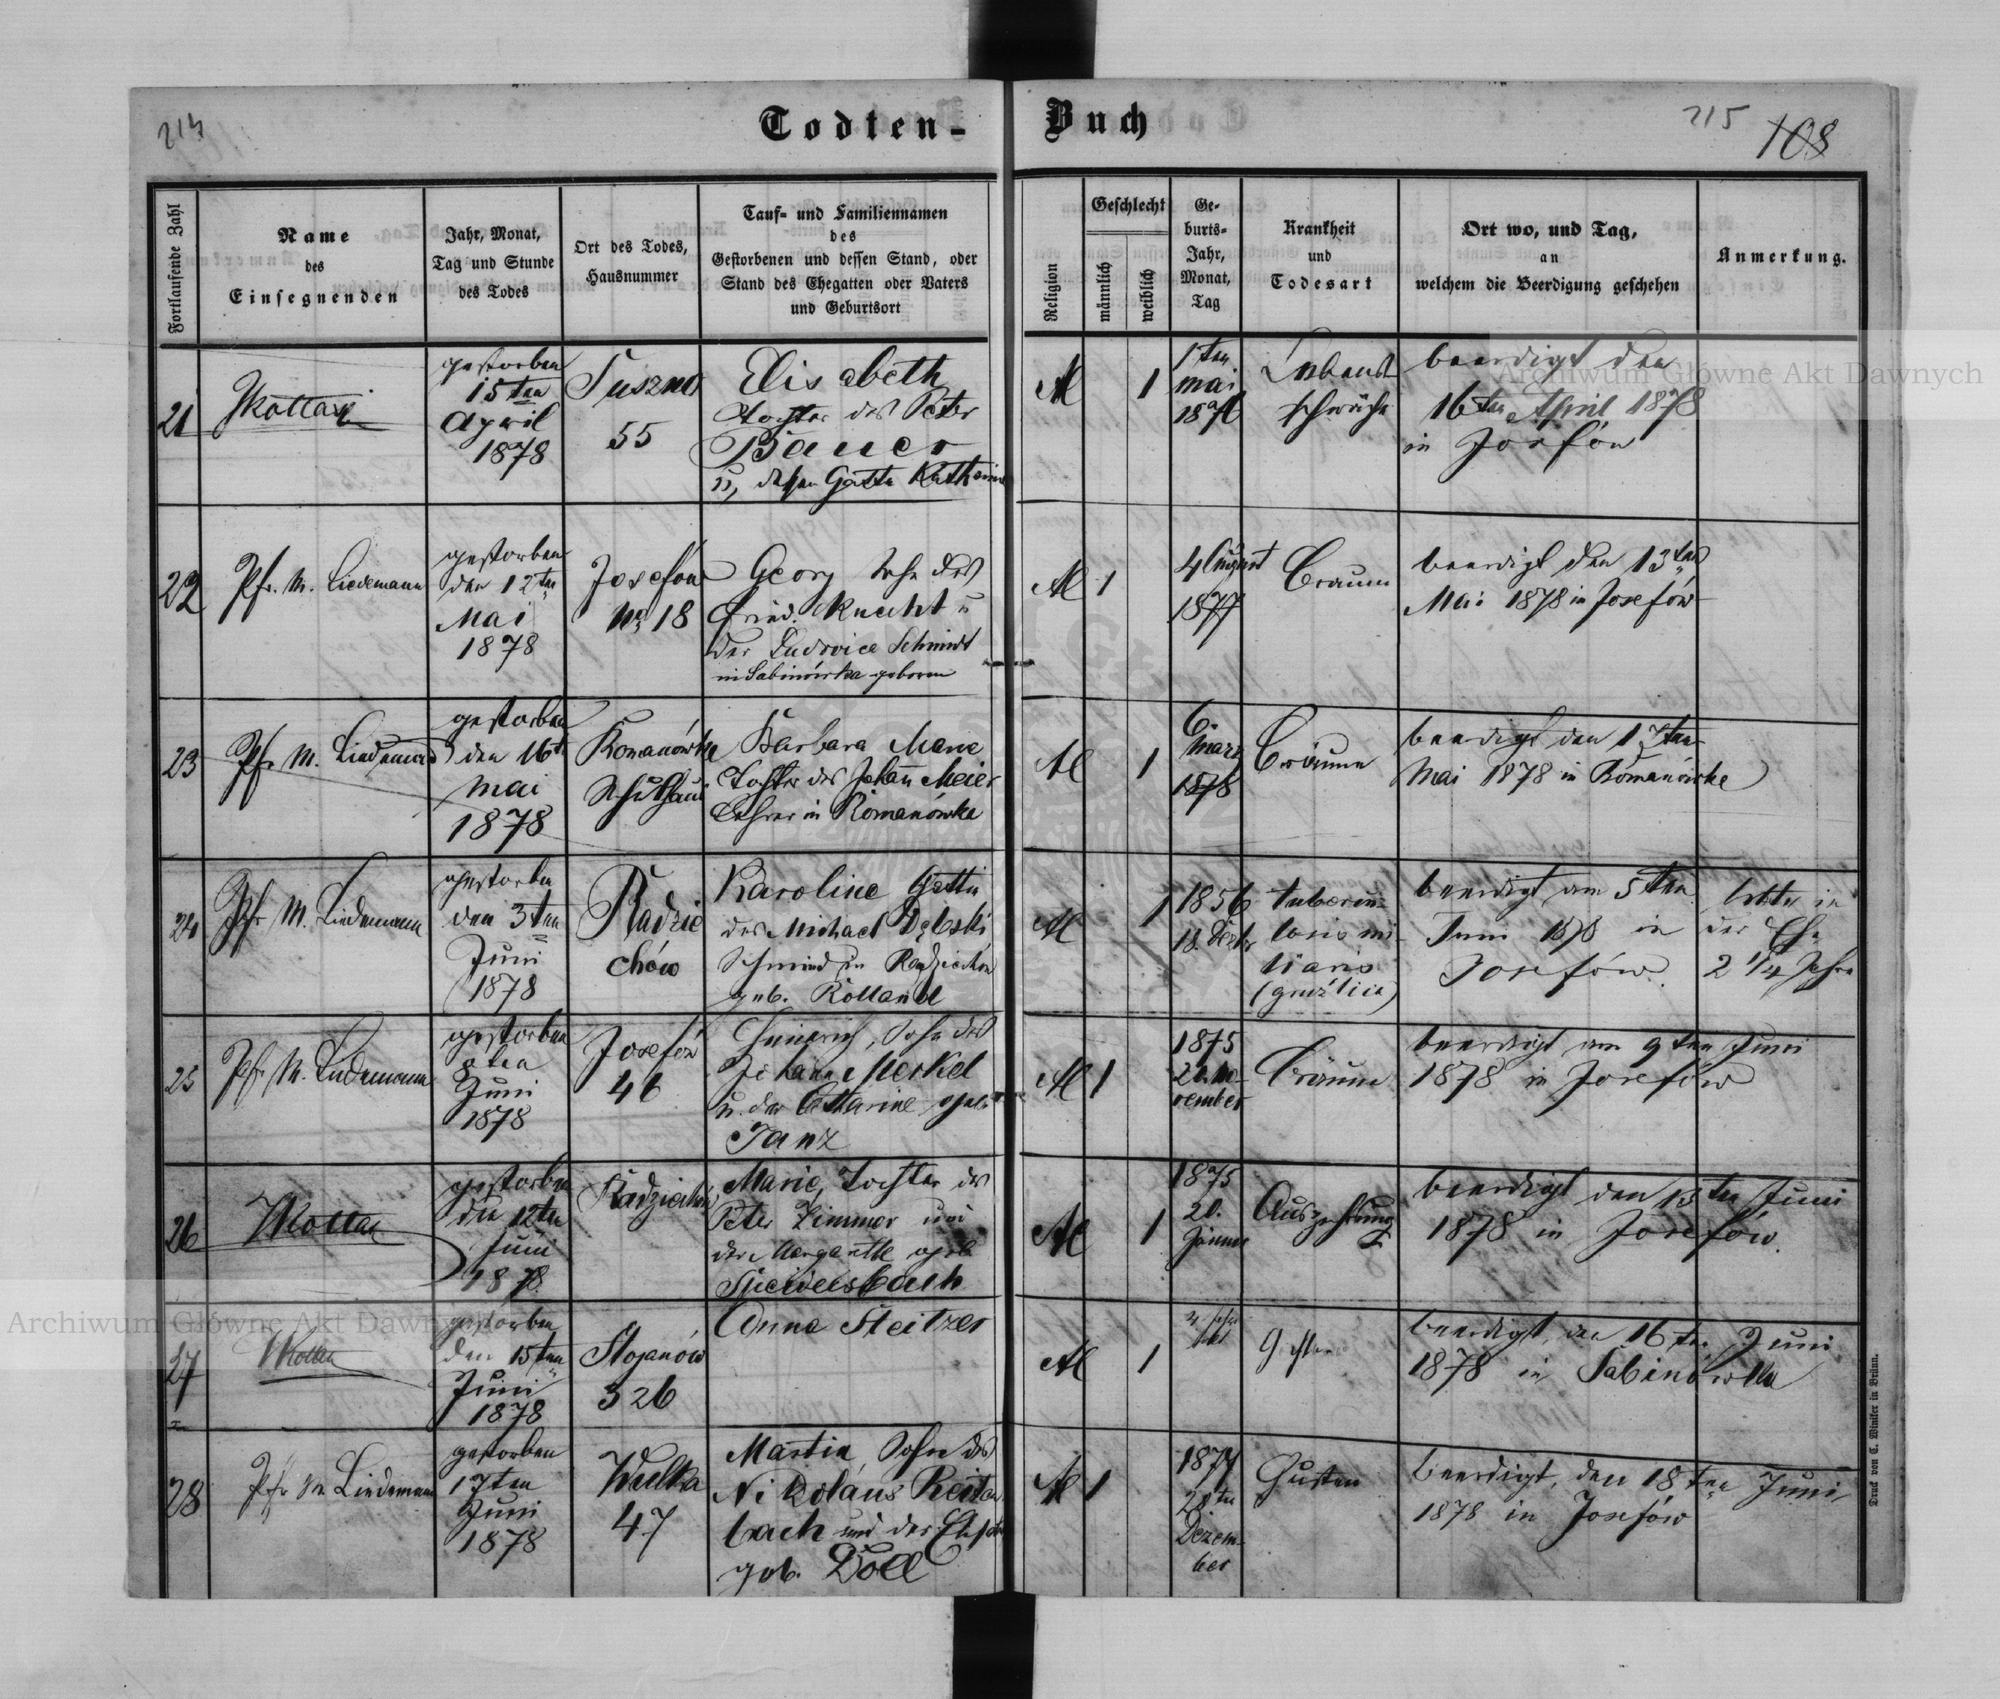 214
Todten-
Buch
215
108
Fortlaufende Zahl
Name
des
Einsegnenden
Jahr, Monat,
Tag und Stunde
des Todes
Ort des Todes,
Hausnummer
Tauf- und Familiennamen
des
Gestorbenen und dessen Stand, oder
Stand des Ehegatten oder Vaters
und Geburtsort
Religion
Geschlecht
männlich
weiblich
Ge-
burts-
Jahr,
Monat,
Tag
Krankheit
und
Todesart
Ort wo, und Tag,
an
welchem die Beerdigung geschehen
Anmerkung.
21
gestorben
15ten
April
1878
55
Elisabeth
Tochter des Peter
Bauer
u, dessen Gattin
1
1ten
mai
Lebens
schwäche
beerdigt den
16ten April 1878
in
22
Pfr. M. Liedemann
gestorben
den 12ten
Mai
1878
Josefów
No 18
Georg Sohn des
Fried. Knecht u
der Ludovica Schmidt
in Sabinówka geboren
1
4 August
1877
Bräune
beerdigt den 13ten
Mai 1878 in Josefów
23
Pfr. M. Liedemann
gestorben
den 16t
Mai
1878
Romanówka
Schulhaus
Barbara Marie
Tochter des Johann Meier
Lehrer in Romanówka
1
6
marz
1878
Bräune
beerdigt den 17ten
Mai 1878 in Romanówka
24
Pfr M. Liedemann
gestorben
den 3ten
Juni
1878
Radzie
chów
Karoline Gattin
des Michael Dębski
Schmied in Radziechów
geb. Rolland
1
1856
18. Dezbr
tubercu-
losis mi-
liaris
beerdigt am 5ten
Juni 1878 in
Josefów.
lebte in
der Ehe
2 1/4 Jahre
25
Pfr M. Liedemann
gestorben
8ten
Juni
1878
Josefów
46
Heinrich, Sohn des
Johann Merkel
u. der Catharine geb.
Janz
1
1875
No-
vember
Bräune
beerdigt am 9ten Juni
1878 in Josefów
26
gestorben
den 12ten
Juni
1878
Radziechów
Marie, Tochter des
Peter Zimmer und
der Margarethe geb
1
1875
20.
Jänner
Auszehrung
beerdigt den 13ten Juni
1878 in Josefów.
27
gestorben
den 15ten
Juni
1878
Stojanów
326
Anna Steitzer
1
beerdigt, den 16ten Juni
1878 in Sabinówka
28
Pfr M Liedemann
gestorben
17ten
Juni
1878
Wulka
47
Martin, Sohn des
Nikolaus Reiten
bach und der
geb. Doll
1
1877
28ten
Dezem-
ber
Husten
beerdigt, den 18ten Juni
1878 in Josefów
Druck von C. Winiker in Brünn.
Archiwum Główne Akt Dawnych
Archiwum Główne Akt Dawnych